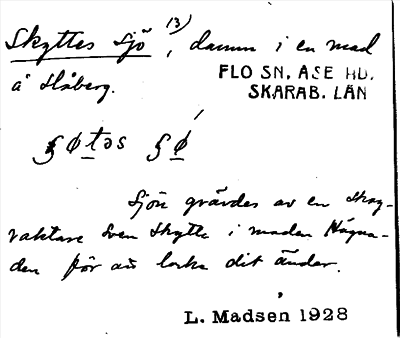 Skyttes Sjö 13), damm i en mad
å Håberg.
FLO SN. ÅSE HD.
SKARAB. LÄN
Sjön grävdes av en skog-
vaktare Sven Skytte i maden Hägna-
den för att locka dit änder.
L. Madsen 1928